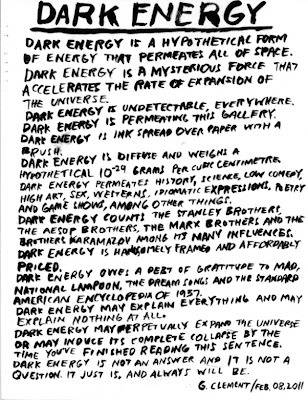 DARK ENERGY
DARK ENERGY IS A HYPOTHETICAL FORM
OF ENERGY THAT PERMEATES ALL OF SPACE.
DARK ENERGY IS A MYSTERIOUS FORCE THAT
ACCELERATES THE RATE OF EXPANSION OF
THE UNIVERSE.
DARK ENERGY IS UNDETECTABLE, EVERYWHERE.
DARK ENERGY IS PERMEATING THIS GALLERY.
DARK ENERGY IS INK SPREAD OVER PAPER WITH A
BRUSH.
DARK ENERGY IS DIFFUSE AND WEIGHS A
HYPOTHETICAL 10-29 GRAMS PER CUBIC CENTIMETRE
DARK ENERGY PERMEATES HISTORY, SCIENCE, LOW COMEDY,
HIGH ART, SEX, WESTERNS, IDIOMATIC EXPRESSIONS, POETRY
AND GAME SHOWS, AMONG OTHER THINGS.
DARK ENERGY COUNTS THE STANLEY BROTHERS,
THE AESOP BROTHERS, THE MARX BROTHERS AND THE
BROTHERS KARAMAZOV AMONG ITS MANY INFLUENCES.
DARK ENERGY IS HANDSOMELY FRAMED AND AFFORDABLY
PRICED.
DARK ENERGY OWES A DEBT OF GRATITUDE TO MAD,
NATIONAL LAMPOON, THE DREAM SONGS AND THE STANDARD
AMERICAN ENCYCLOPEDIA OF 1937.
DARK ENERGY MAY EXPLAIN EVERYTHING AND MAY
EXPLAIN NOTHING AT ALL.
DARK ENERGY MAY PERPETUALLY EXPAND THE UNIVERSE
OR MAY INDUCE ITS COMPLETE COLLAPSE BY THE
TIME YOU'VE FINISHED READING THIS SENTENCE.
DARK ENERGY IS NOT AN ANSWER AND IT IS NOT A
QUESTION. IT JUST IS, AND ALWAYS WILL BE.
G. CLEMENT/FEB. 08, 2011